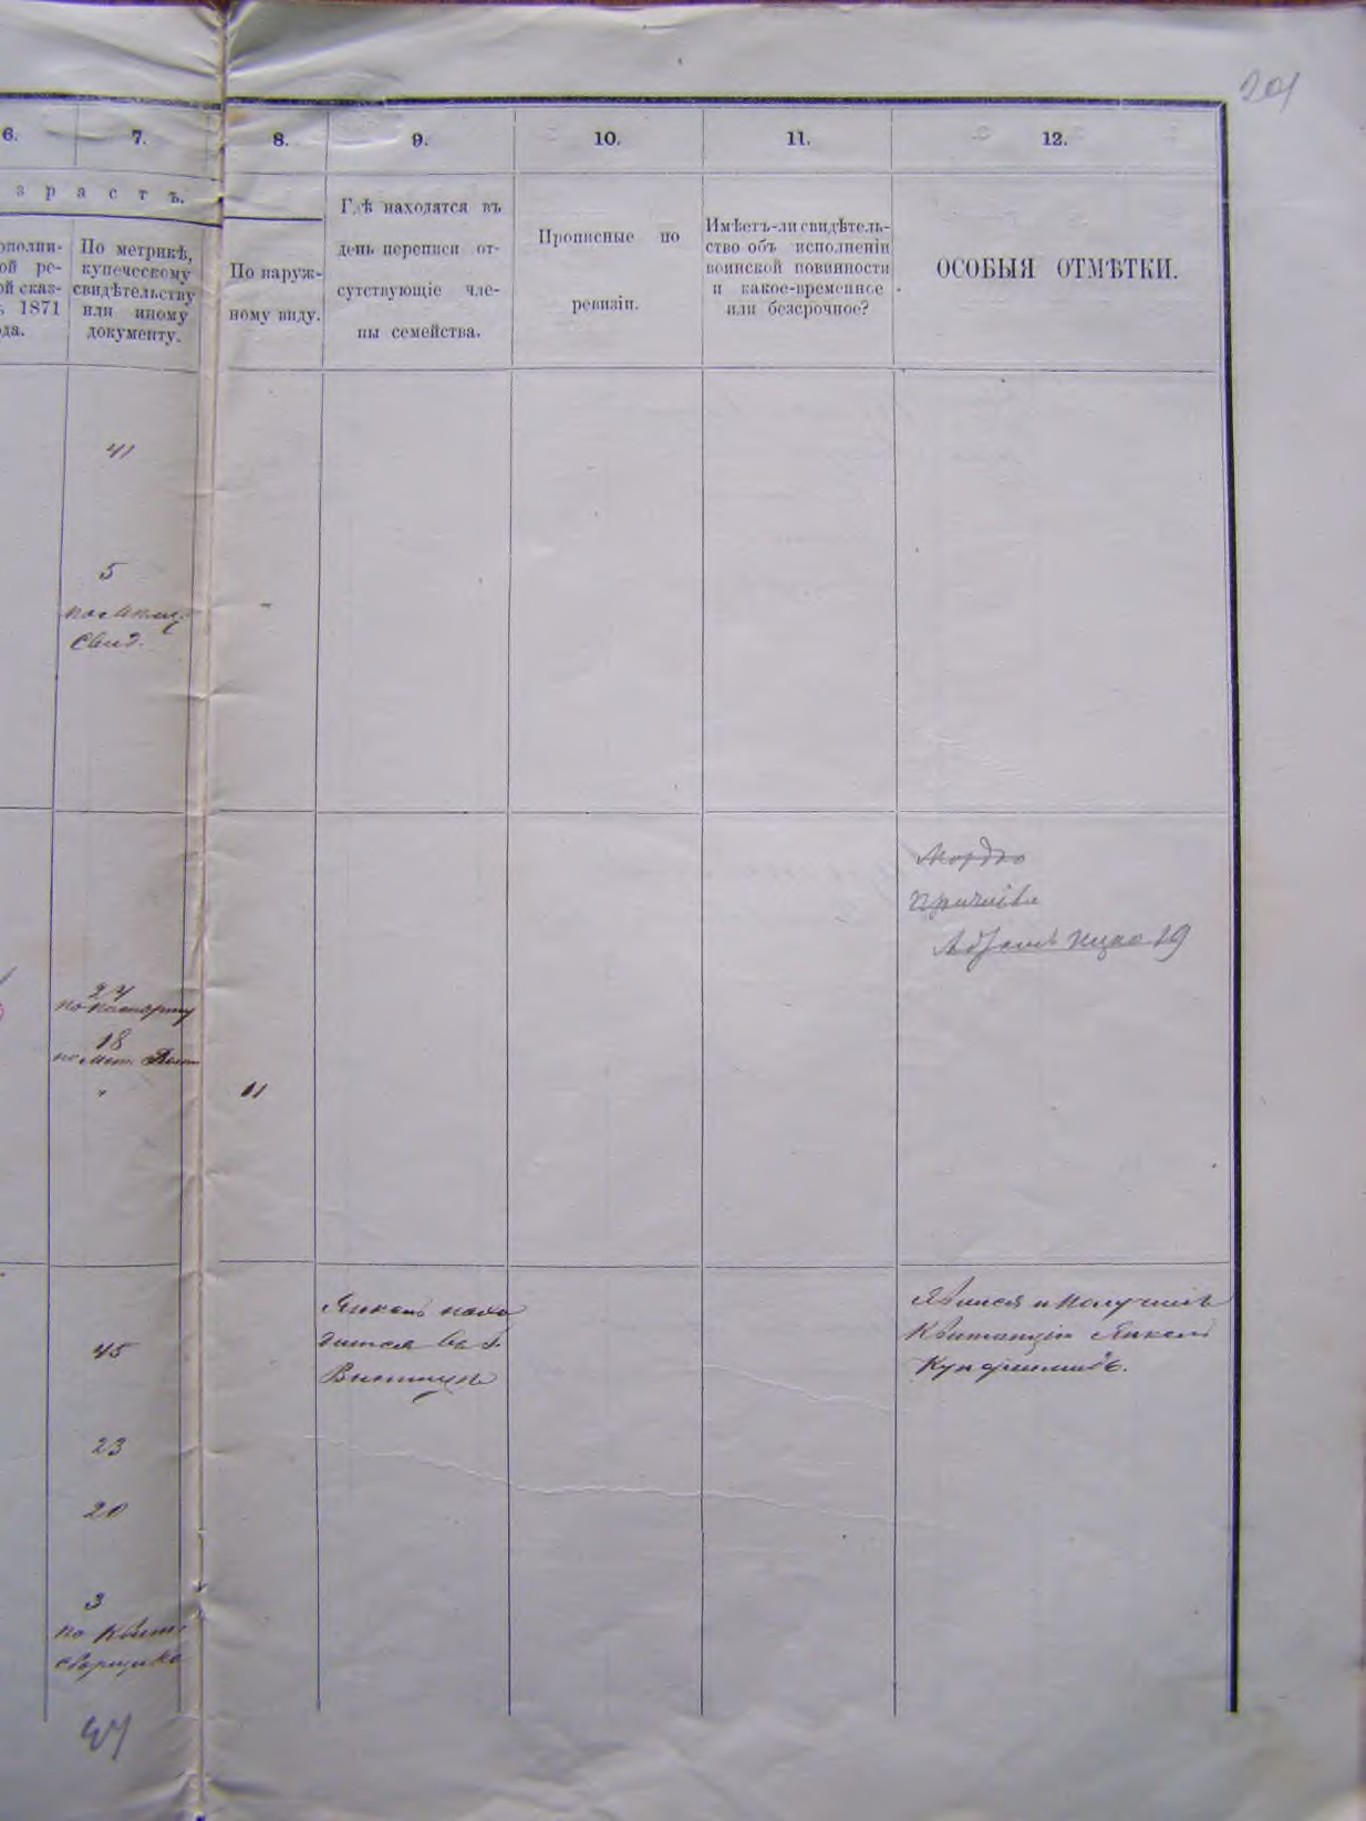 201
6.
7.
8.
9.
10.
11.
12.
зрастъ.
ополни-
ой ре-
ой сказ-
1871
да.
По метрикѣ,
купеческому
свидѣтельству
или иному
документу.
По наруж-
ному виду.
Гдѣ находятся въ
день переписи от-
сутствующіе чле-
ны семейства.
Прописные по
ревизіи.
Имѣетъ-ли свидѣтель-
ство объ исполненіи
воинской повинности
и какое-временное
или безсрочное?
ОСОБЫЯ ОТМѢТКИ.
41
5
Свид.
Мордко
19
24
по паспорту
18
по Мет.
11
45
23
20
3
по Квит.
сборщика
Янкель нахо
дится въ г.
Явился и получилъ
Квитанцію Янкель